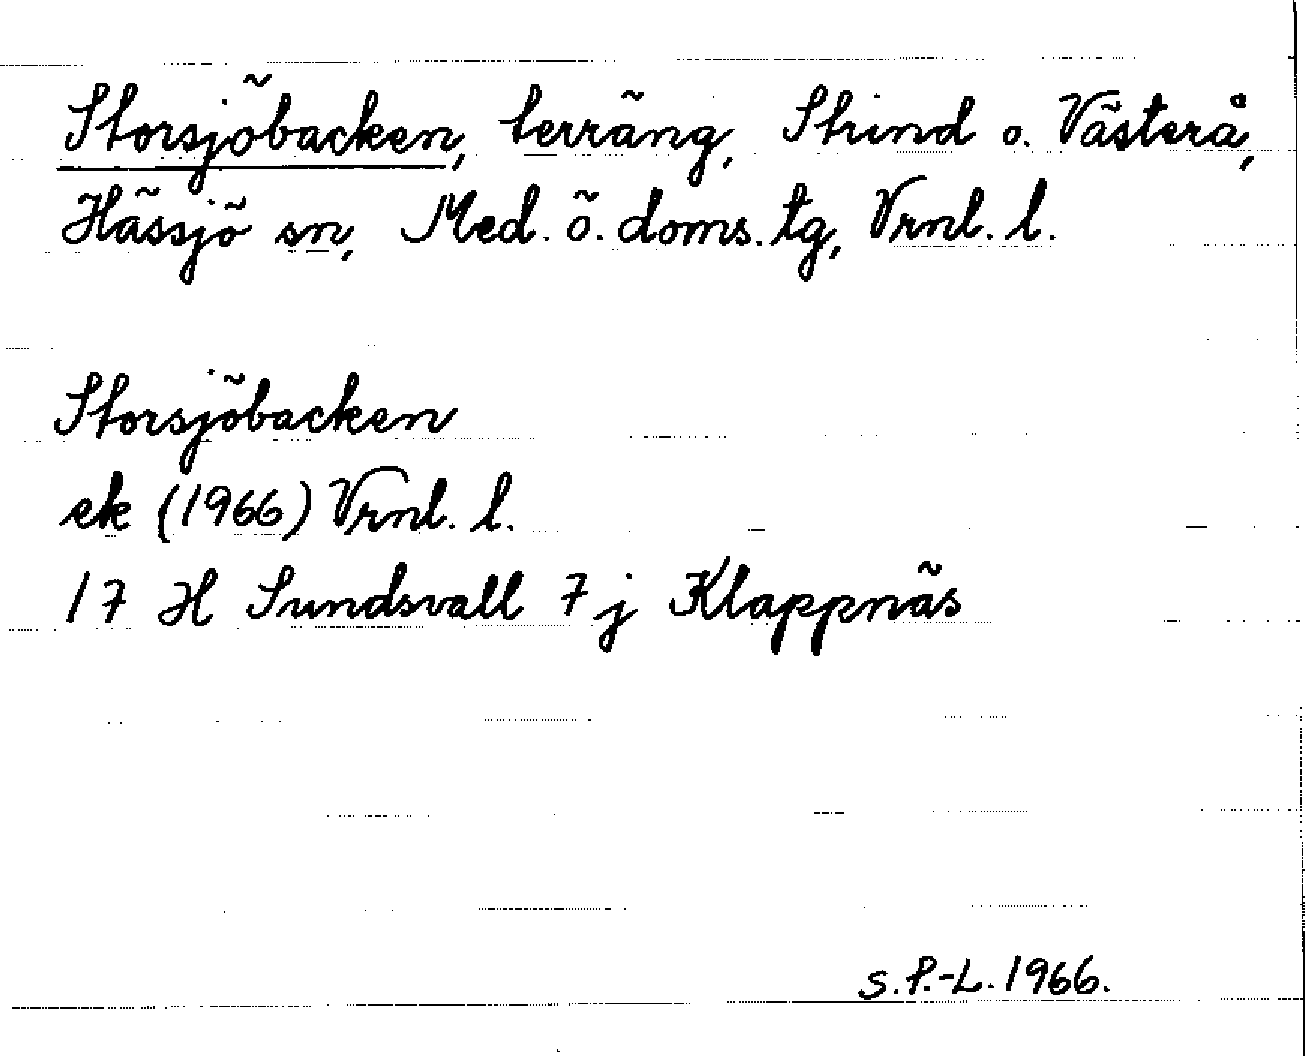 Storsjöbacken, terräng, Strind o. Västerå,
Hässjö sn, Med. ö. doms. tg, Vrnl. l.
Storsjöbacken
ek (1966) Vrnl. l.
17 H Sundsvall 7 j Klappnäs
S. P.-L. 1966.